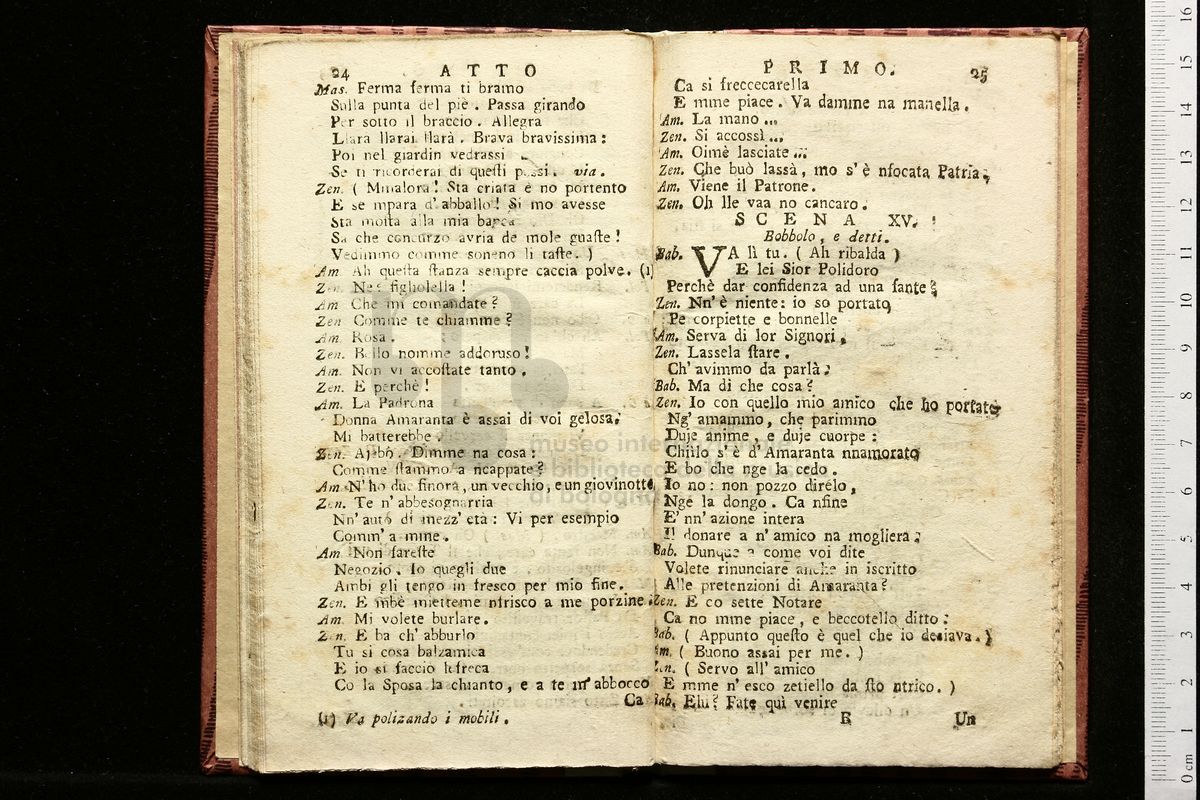 24 ATTO
Mas. Ferma ferma ti bramo
Sulla punta del piè. Passa girando
Per sotto il braccio. Allegra
Llara llarai llarà. Brava bravissima:
Poi nel giardin vedrassi
Se ti ricorderai di questi passi. via.
Zen. ( Mmalora! Sta criata è no portento
E se mpara d'abballo! Si mo avesse
Sta mosta alla mia banca
Sa che concurzo avria de mole guaste!
Vedimmo comme soneno li taste. )
Am. Ah questa stanza sempre caccia polve. (1)
Zen. Neh figliolella!
Am. Che mi comandate?
Zen. Comme te chiamme?
Am. Rosa.
Zen. Bello nomme addoruso!
Am. Non vi accostate tanto.
Zen. E perchè!
Am. La Padrona
Donna Amaranta è assai di voi gelosa,
Mi batterebbe.
Zen. Ajebò. Dimme na cosa:
Comme stammo a ncappate?
Am. N'ho due finora, un vecchio, e un giovinotto,
Zen. Te n'abbesognarria
Nn'auto di mezz'età: Vi per esempio
Comm'a mme.
Am. Non fareste
Negozio. Io quegli due
Ambi gli tengo in fresco per mio fine.
Zen. E mbè mietteme nfrisco a me porzine.
Am. Mi volete burlare.
Zen. E ba ch'abburlo
Tu si cosa balzamica
E io si faccio
Co la Sposa la chianto, e a te m'abbocco
Ca
(1) Va polizando i mobili.
PRIMO. 25
Ca si freccecarella
E mme piace. Va damme na manella.
Am. La mano ...
Zen. Si accossì ...
Am. Oimè lasciate ...
Zen. Che buò lassà, mo s'è nfocata Patria;
Am. Viene il Patrone.
Zen. Oh lle vaa no cancaro.
SCENA XV.
Bobbolo, e detti.
Bab. VA lì tu. ( Ah ribalda )
E lei Sior Polidoro
Perchè dar confidenza ad una fante?
Zen. Nn'è niente: io so portato
Pe corpiette e bonnelle
Am. Serva di lor Signori,
Zen. Lassela stare.
Ch'avimmo da parlà;
Bab. Ma di che cosa?
Zen. Io con quello mio amico che ho portato
Ng'amammo, che parimmo
Duje anime, e duje cuorpe:
Chillo s'è d'Amaranta nnamorato
E bo che nge la cedo.
Io no: non pozzo direlo,
Nge la dongo. Ca nfine
E' nn'azione intera
Il donare a n'amico na mogliera;
Bab. Dunque a come voi dite
Volete rinunciare anche in iscritto
Alle pretenzioni di Amaranta?
Zen. E co sette Notare
Ca no mme piace, e beccotello ditto:
Bab. ( Appunto questo è quel che io desiava. )
Am. ( Buono assai per me. )
Zen. ( Servo all'amico
E mme n'esco zetiello da sto ntrico. )
Bab. Ehi? Fate qui venire
B Un
museo internazionale
biblioteca della musica
di bologna